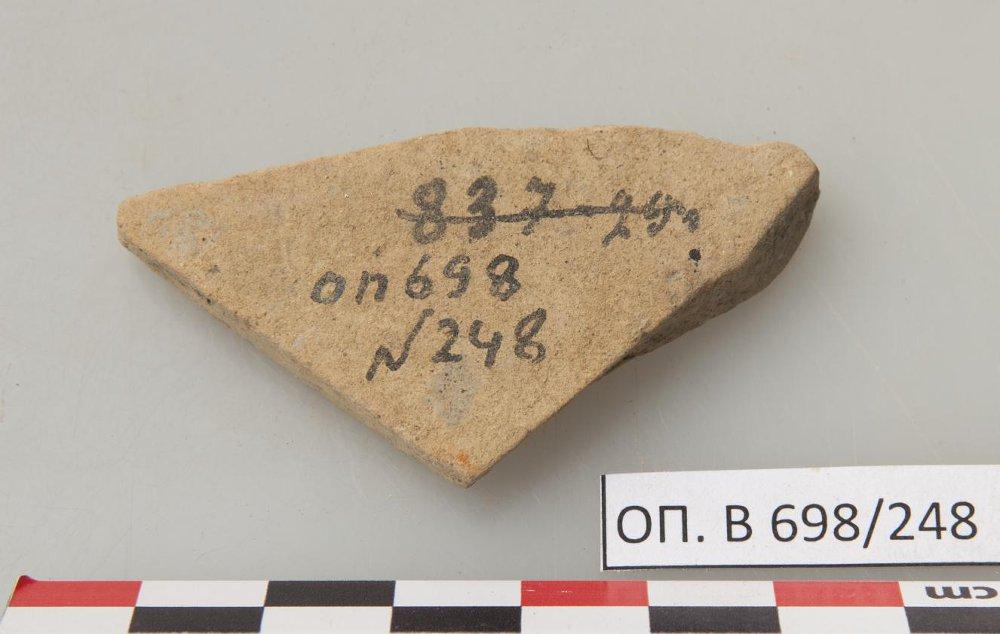 837
оп 698
№ 248
ОП. В 698/248
cm